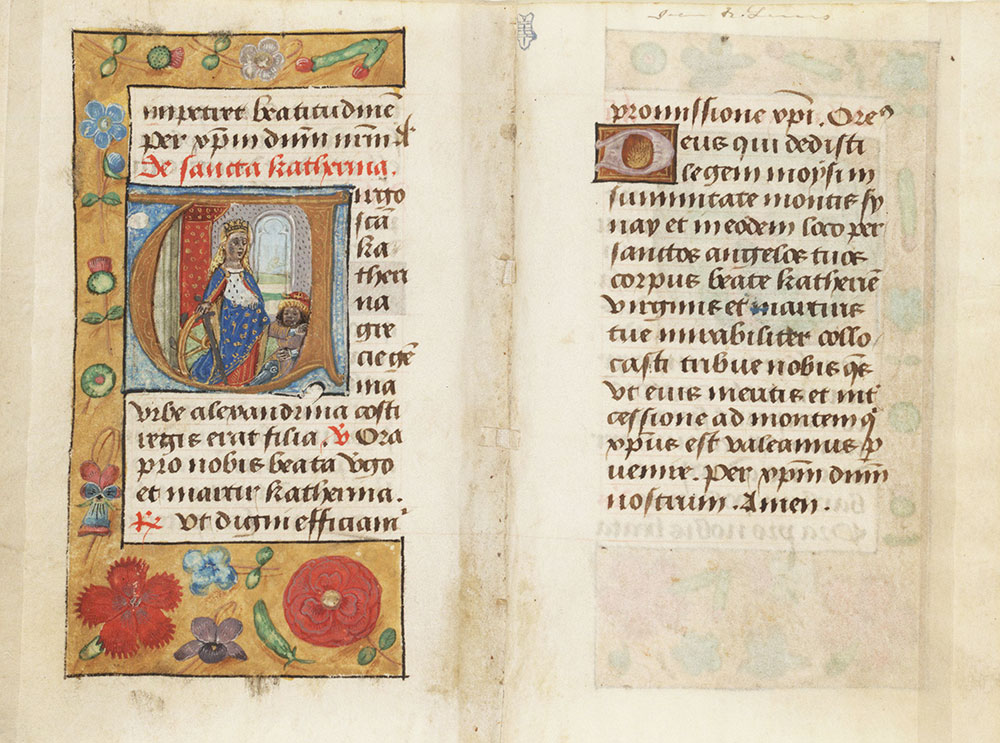 impetret beatitudinē
per xp̄m dn̄m nr̄m
De sancta katherina.
Virgo
sc̄a
ka
theri
na
gre
cie gē
ma
vrbe alexandrina costi
regis erat filia. V Ora
pro nobis beata v̄go
et martir katherina.
R Vt digni efficiam᷒
promissione xp̄i. Ore᷒
Deus qui dedisti
legem moysi in
summitate montis sy
nay et in eodem loco per
sanctos angelos tuos
corpus beate katherīe
virginis et martiris
tue mirabiliter collo
casti tribue nobis q̄s
vt eius meritis et int̄
cessione ad montem q
xp̄us est valeamus p
venire. Per xp̄m dn̄m
nostrum. Amen.